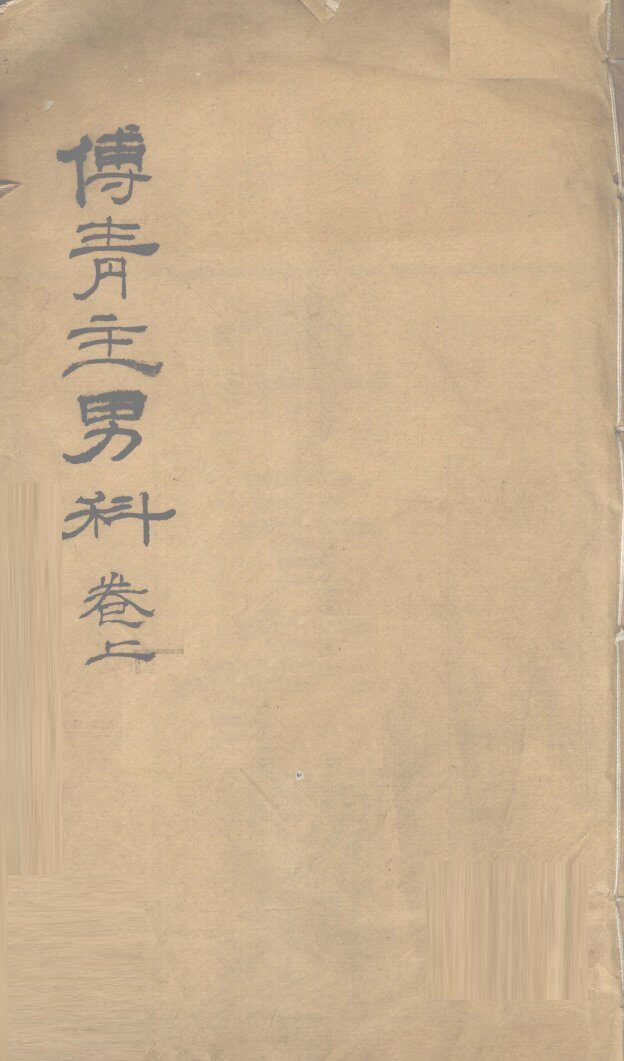 傅青主男科卷上